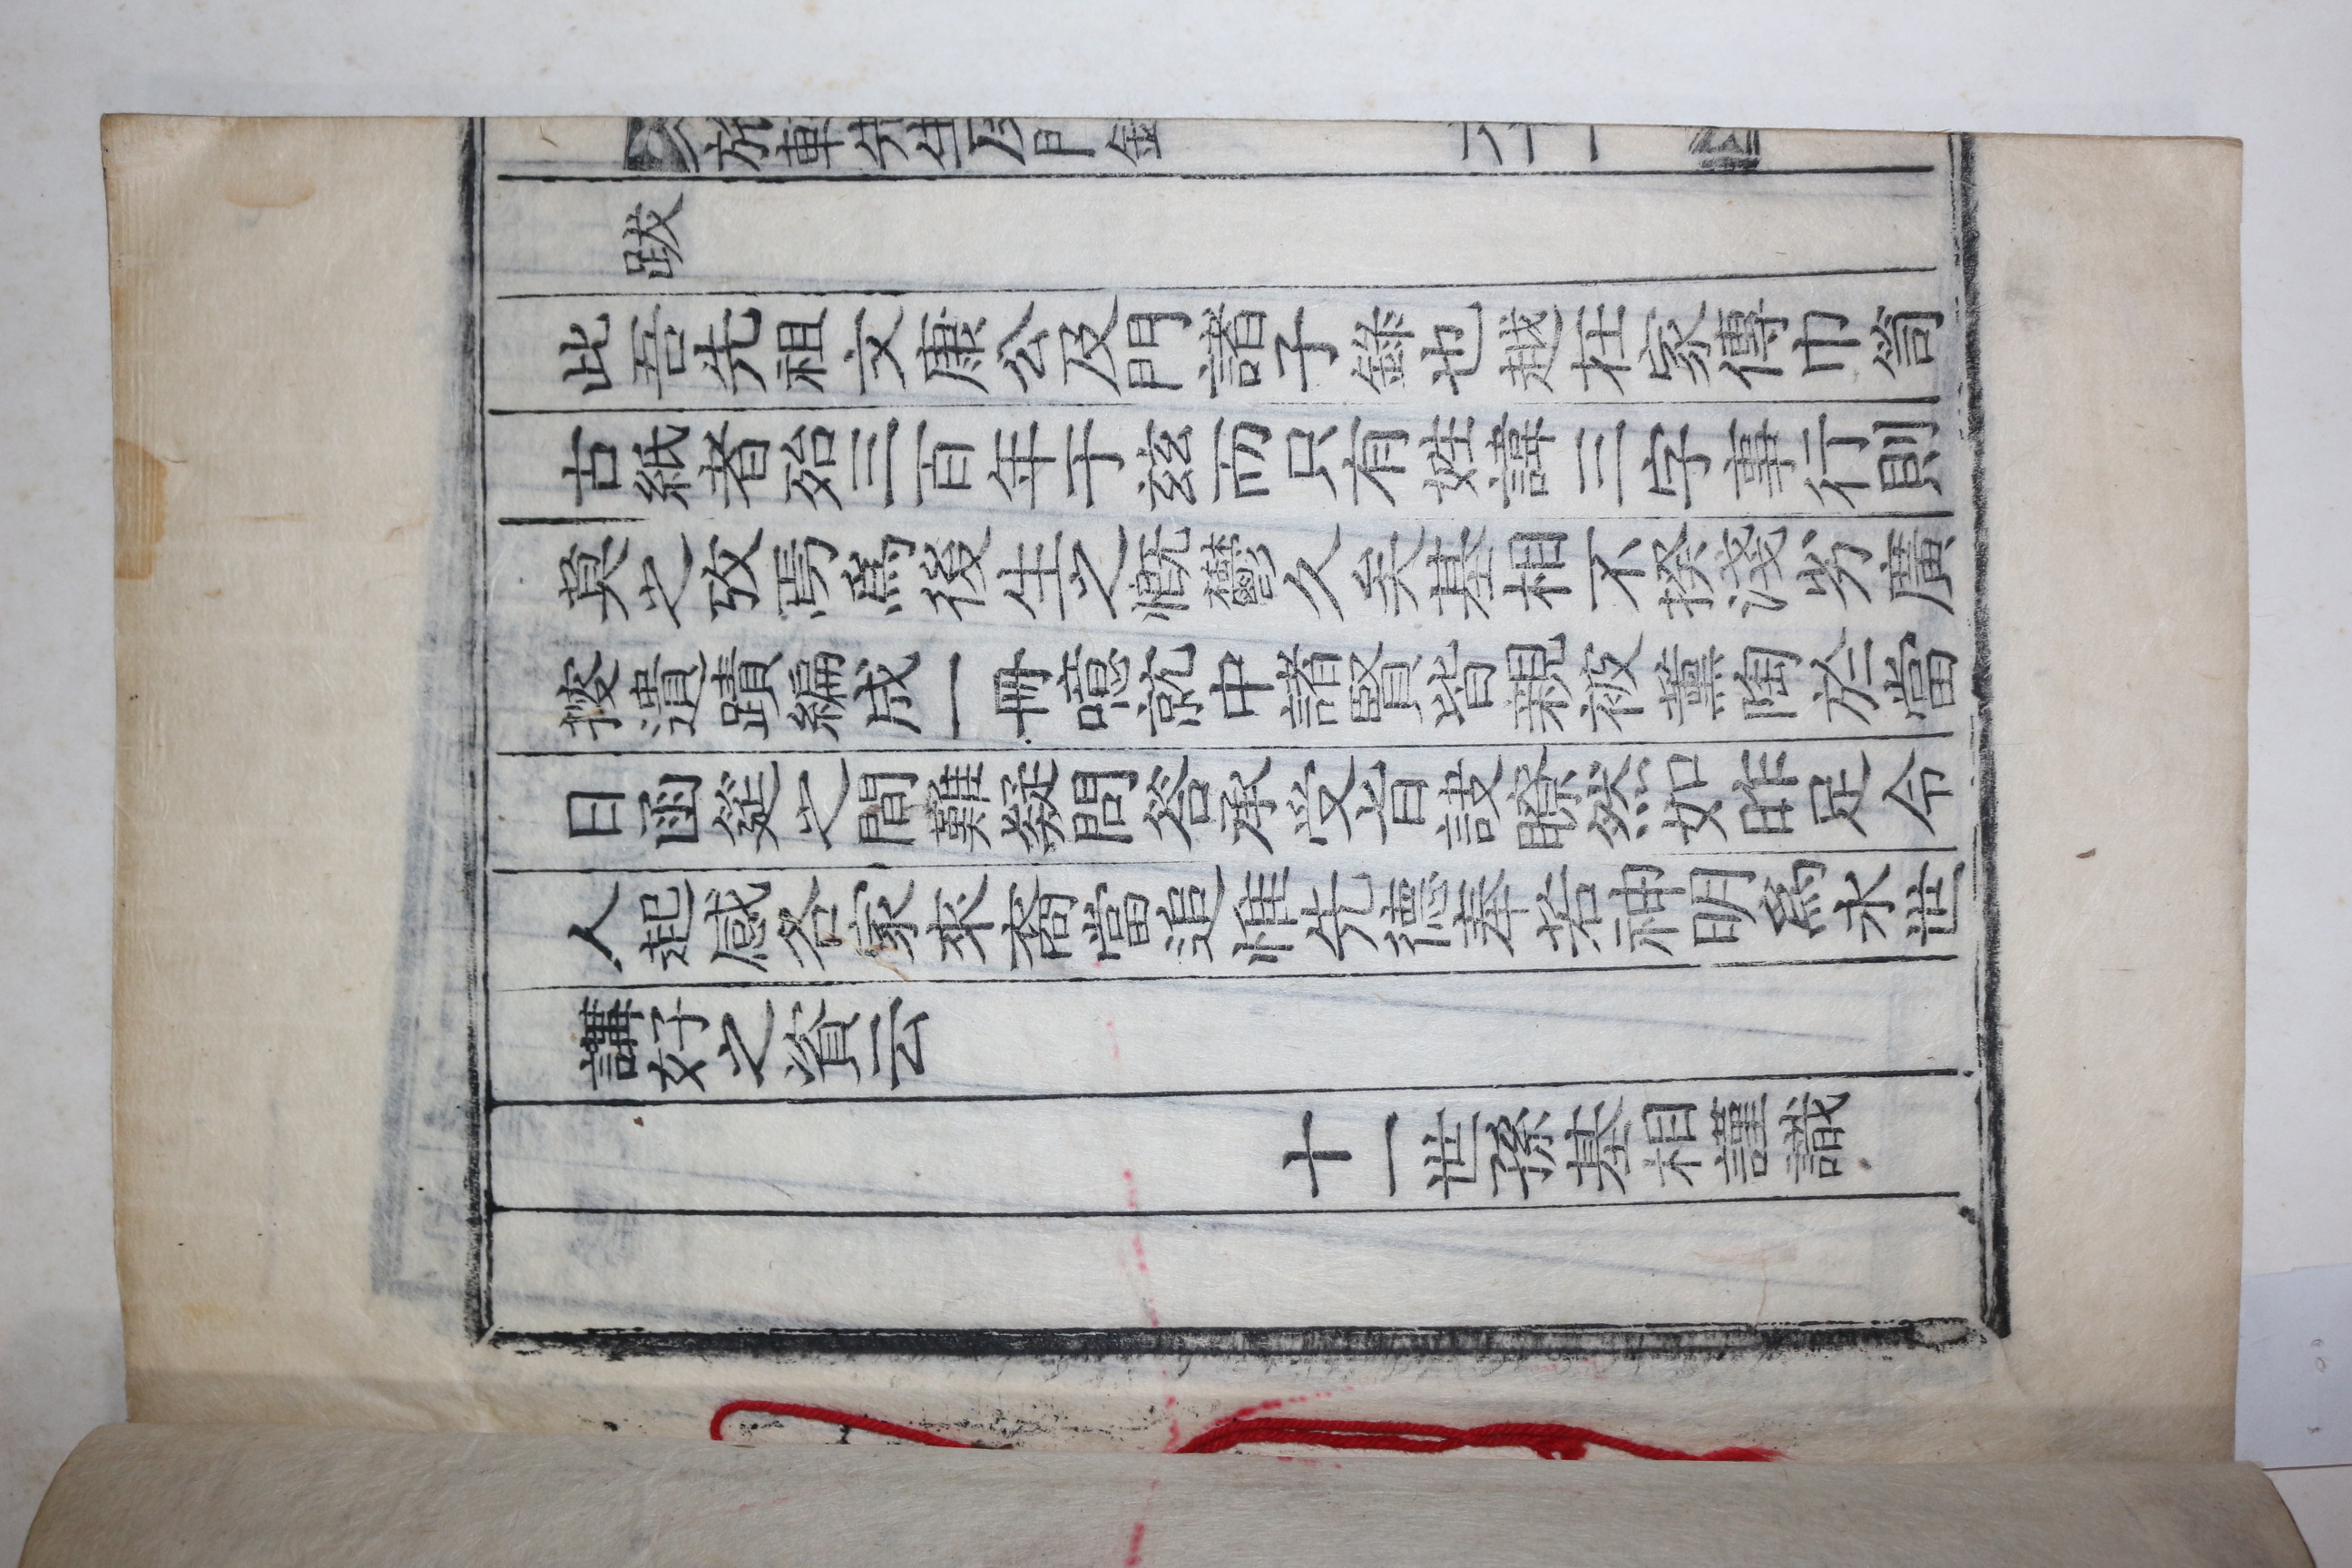 旅軒先生及門錄
六十一
跋
此吾先祖文康公及門諸子錄也越在家傳巾笥
古紙者殆三百年于玆而只有姓諱三字事行則
莫之攷焉爲後生之慨鬱久矣基相不揆淺劣廣
搜遺蹟編成一冊噫就中諸賢皆親被薰陶於當
日函筵之間難疑問答承受旨訣瞭然如昨足令
人起感各家來裔當追惟先德奉若神明爲永世
講好之資云
十一世孫基相謹識